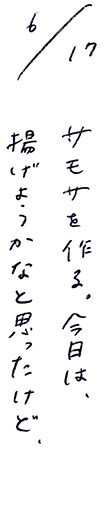 6/17
サモサを作る。今日は、
揚げようかなと思ったけど、